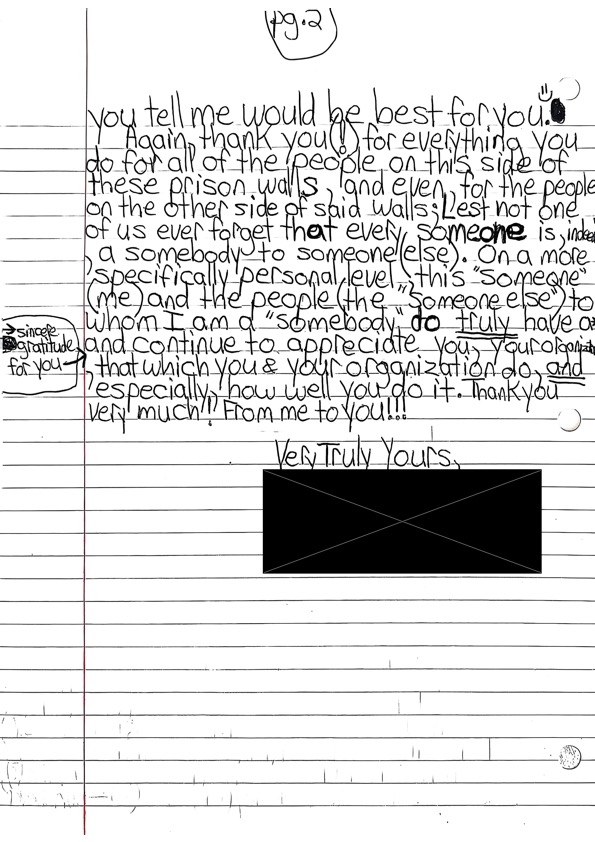 pg.2
you tell me would be best for you.
Again, thank you(!) for everything you
do for all of the people on this side of
these prison walls, and even, for the people
on the other side of said walls; Lest not one
of us ever forget that every someone is, indeed
, a somebody to someone(else). On a more
specifically personal level, this "someone"
(me) and the people (the "someone else") to
whom I am a "somebody" do truly have a
→ sincere
gratitude
for you →
and continue to appreciate you, your organization
, that which you & your organization do, and
, especially, how well you do it. Thank you
very much!! From me to you!!!
Very Truly Yours,